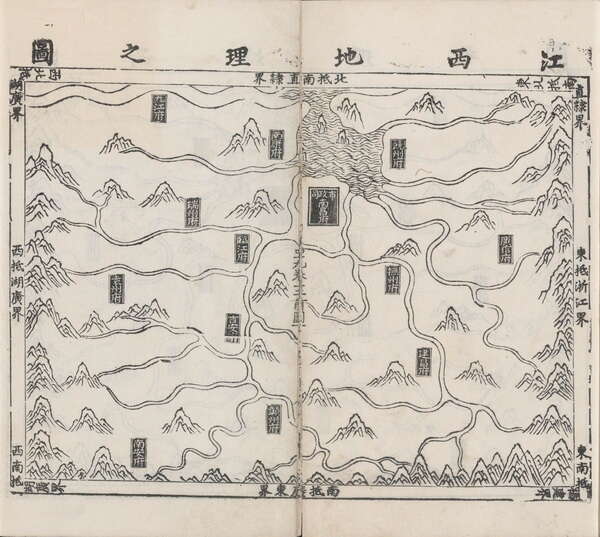 江西地理之圖
北抵南直隸界
直隸界
東抵浙江界
東南抵
南抵廣東界
西南抵
西抵湖廣界
湖廣界
九江府
南康府
饒州府
布政司
南昌府
瑞州府
臨江府
廣信府
撫州府
袁州府
吉安
建昌府
贛州府
南安府